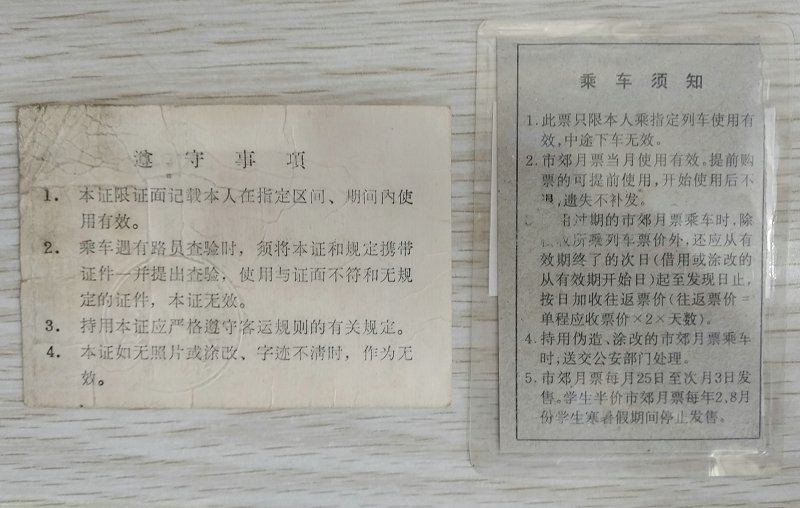 遵守事項
1. 本证限证面记载本人在指定区间、期间内使
用有效。
2. 乘车遇有路员查验时，须将本证和规定携带
证件一并提出查验，使用与证面不符和无规
定的证件，本证无效。
3. 持用本证应严格遵守客运规则的有关规定。
4. 本证如无照片或涂改、字迹不清时，作为无
效。
乘车须知
1. 此票只限本人乘指定列车使用有
效，中途下车无效。
2. 市郊月票当月使用有效。提前购
票的可提前使用，开始使用后不
退，遗失不补发。
出过期的市郊月票乘车时，除
收所乘列车票价外，还应从有
效期终了的次日（借用或涂改的
从有效期开始日）起至发现日止，
按日加收往返票价（往返票价＝
单程应收票价×2×天数）。
4. 持用伪造、涂改的市郊月票乘车
时，送交公安部门处理。
5. 市郊月票每月25日至次月3日发
售。学生半价市郊月票每年2、8月
份学生寒暑假期间停止发售。